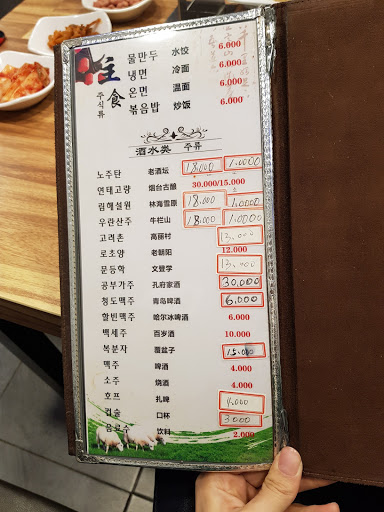 主食
주식류
물만두 水饺 6.000
냉면 冷面 6.000
온면 温面 6.000
볶음밥 炒饭 6.000
酒水类 주류
노주탄 老酒坛 18.000 10.000
연태고량 烟台古酿 30.000/15.000
림해설원 林海雪原 18.000 10.000
우란산주 牛栏山 18.000 10.000
고려촌 高丽村 13.000
로초양 老朝阳 12.000
문등학 文登学 13.000
공부가주 孔府家酒 30.000
청도맥주 青岛啤酒 6.000
할빈맥주 哈尔冰啤酒 6.000
백세주 百岁酒 10.000
복분자 覆盆子 15.000
맥주 啤酒 4.000
소주 烧酒 4.000
호프 扎啤 4.000
컵술 口杯 3.000
음료수 饮料 2.000